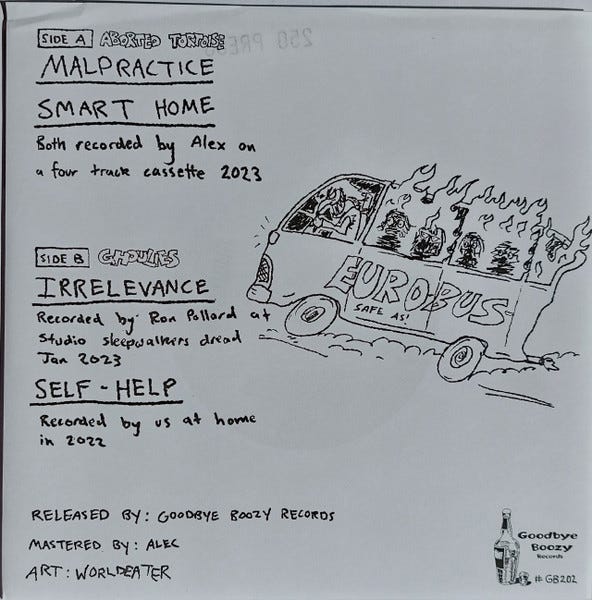 SIDE A ABORTED TORTOISE
250 PRESS
MALPRACTICE
SMART HOME
Both recorded by Alex on
a four track cassette 2023
SIDE B GHOULIES
IRRELEVANCE
Recorded by Ron Pollard at
Studio sleepwalkers dread
Jan 2023
SELF-HELP
Recorded by us at home
in 2022
EURO-BUS
SAFE AS!
RELEASED BY: GOODBYE BOOZY RECORDS
MASTERED BY: ALEC
ART: WORLDEATER
Goodbye
Boozy
Records
# GB202